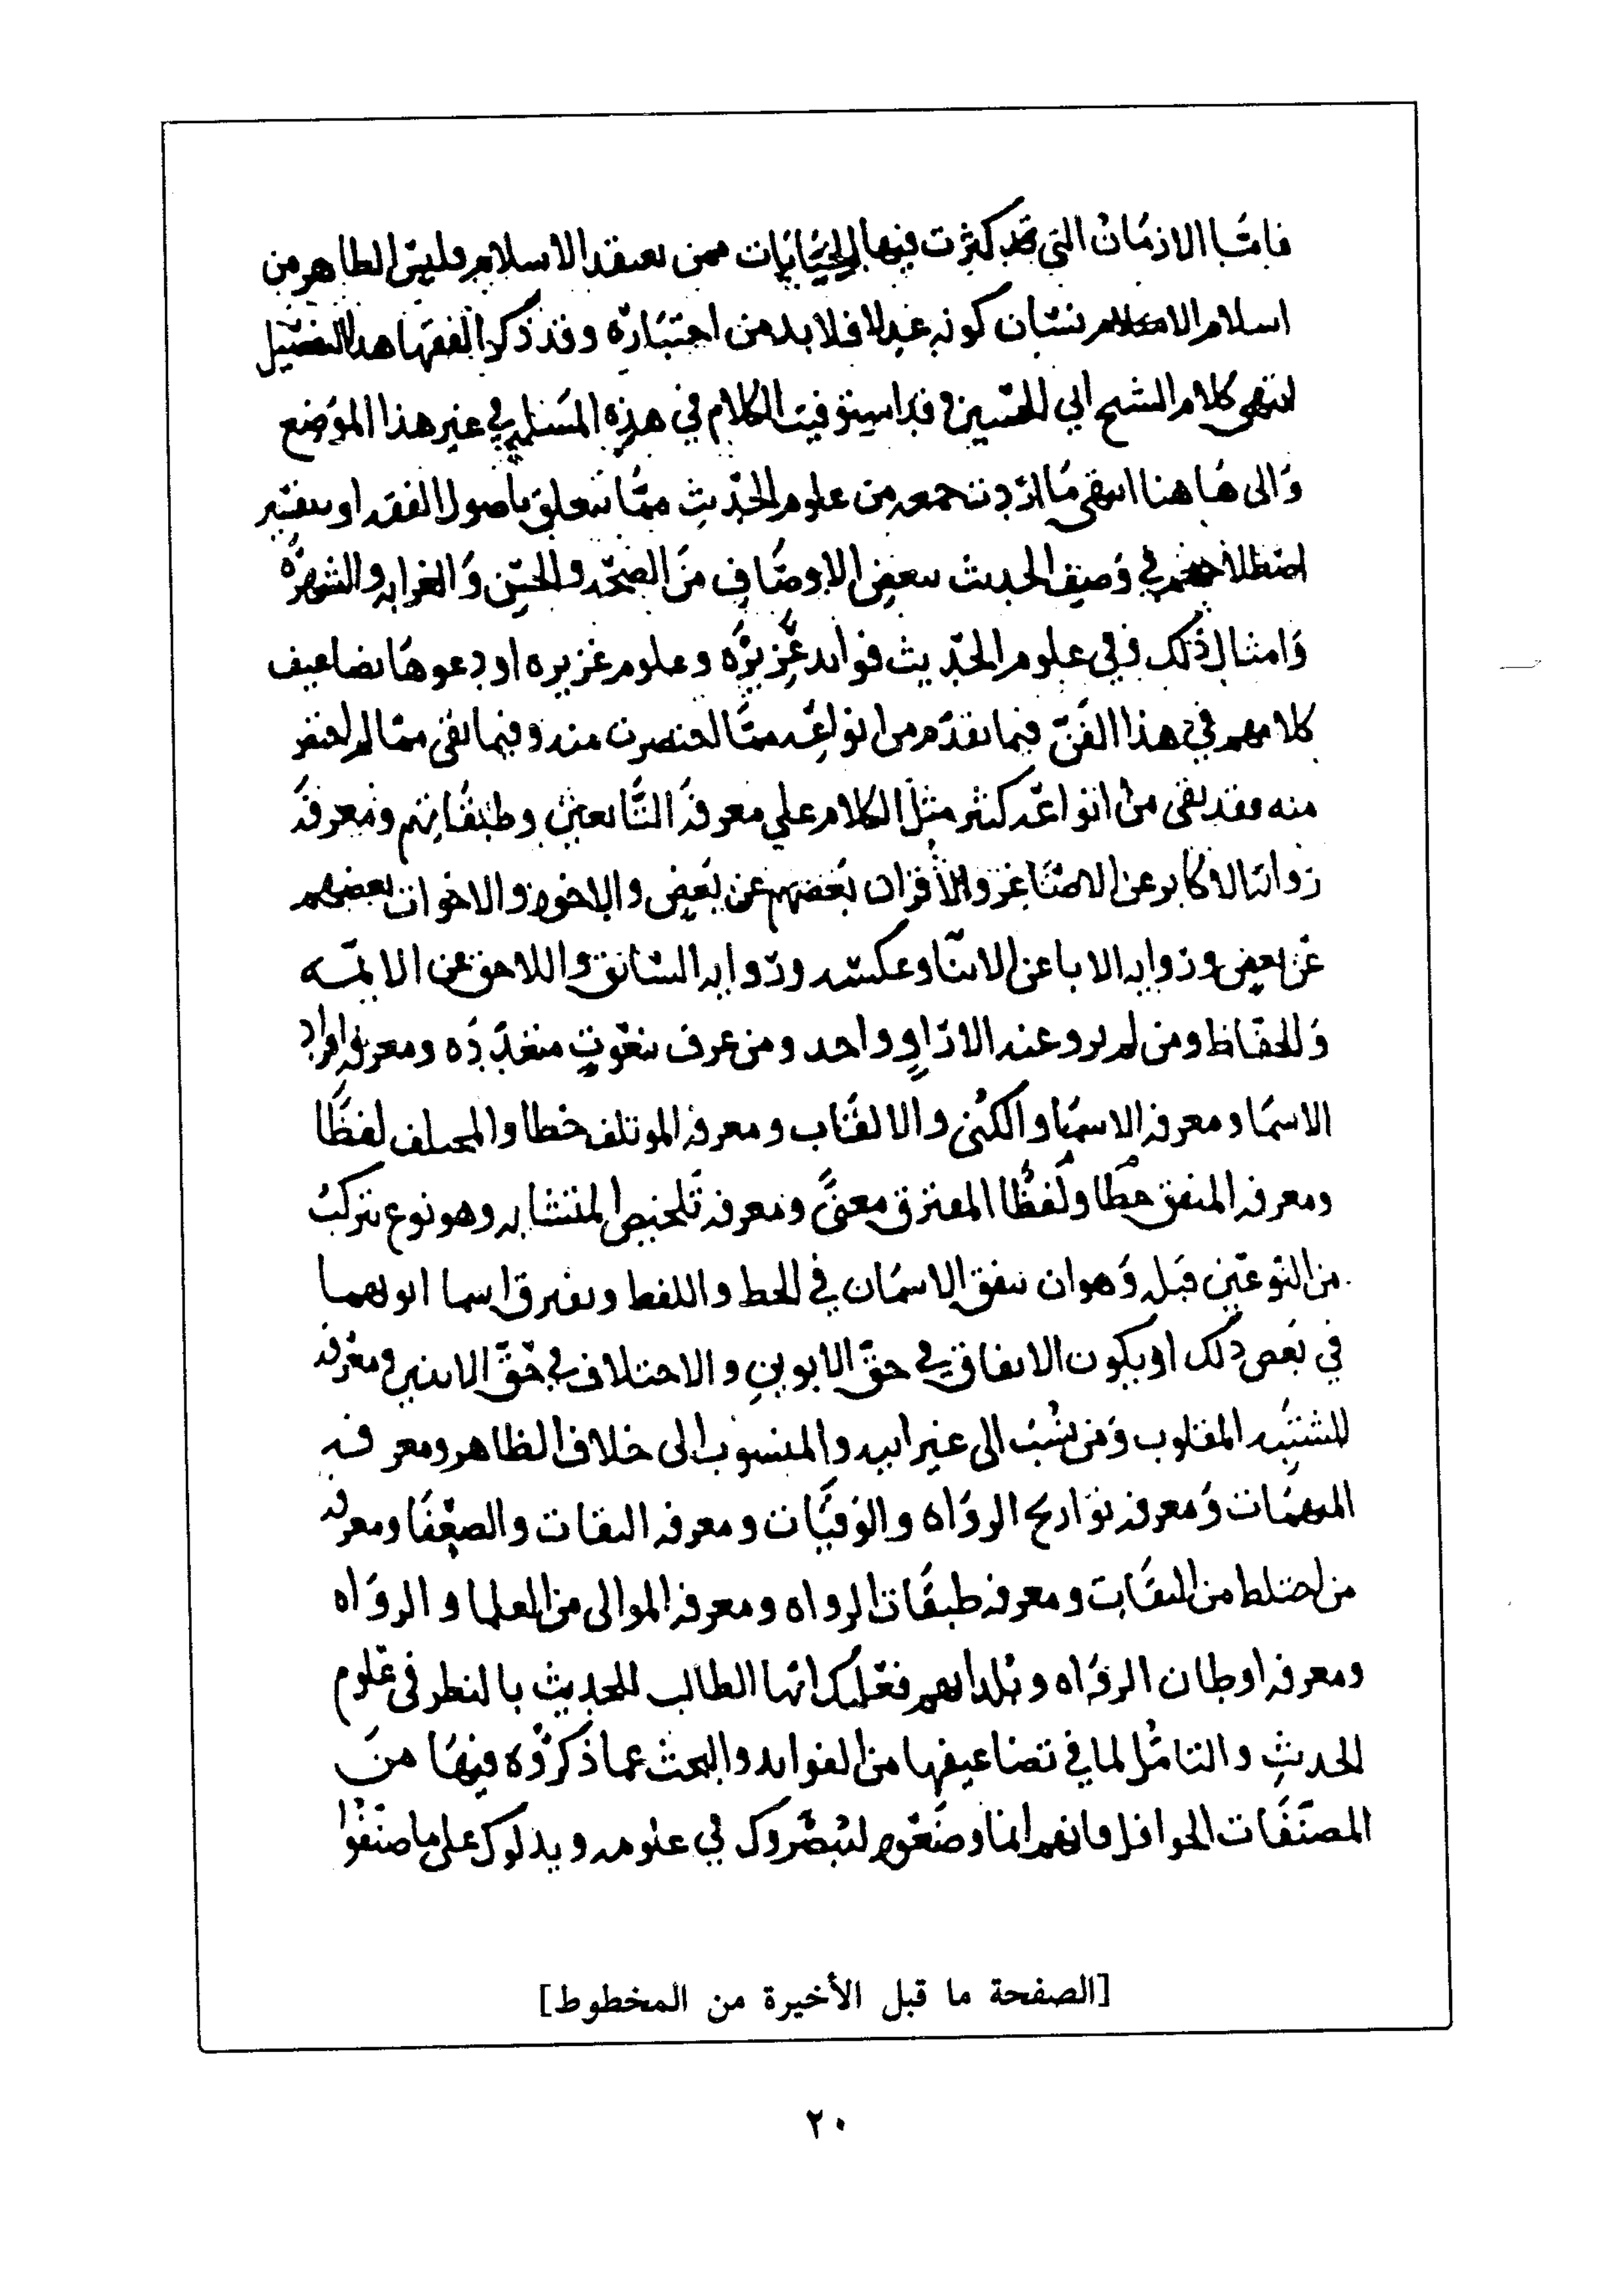 فامّا الازمان التي قد كثرت فيها الجنايات ممن يعتقد الاسلام فليس الظاهر من
اسلام الانسان كونه عدلا فلا بد من اختباره وقد ذكر الفقها هذا التفصيل
انتهى كلام الشيخ ابي الحسين وقد استوفيت الكلام في هذه المسئله في غير هذا الموضع
والى هاهنا انتهى ما اردت جمعه من علوم الحديث ممّا يتعلق باصول الفقه او يفسّر
اصطلاحهم في وصف الحديث ببعض الاوصاف من الصحّه والحسن والغرابه والشهره
وامثال ذلك وفي علوم الحديث فوايد عزيزه وعلوم غزيره اودعوها تضاعيف
كلامهم في هذا الفنّ فيما تقدّم من انواعه ممّا اختصرت منه وفيما بقي ممّا لم اختصر
منه وقد بقي من انواعه كثير مثل الكلام على معرفة التّابعين وطبقاتهم ومعرفة
رواية الاكابر عن الاصاغر والأقران بعضهم عن بعض والاخوه والاخوات بعضهم
عن بعض وروايه الابا عن الابنا وعكسه وروايه السّابق واللاحق عن الايمّه
والحفّاظ ومن لم يرو عنه الا راوٍ واحد ومن عرف بنعوت متعدّده ومعرفه افراد
الاسما ومعرفه الاسما والكنى والالقاب ومعرفه الموتلف خطا والمختلف لفظًا
ومعرفه المتفق خطًا ولفظًا المفترق معنىً ومعرفه تلخيص المتشابه وهو نوع يتركّب
من النوعين قبله وهو ان يتفق الاسمان في الخط واللفظ ويفترق اسما ابويهما
في بعض ذلك او يكون الاتفاق في حقّ الابوين والاختلاف في حقّ الابنين ومعرفه
المشتبه المقلوب ومن نسب الى غير ابيه والمنسوب الى خلاف الظاهر ومعرفه
المبهمات ومعرفه تواريخ الرواه والوفيات ومعرفه الثقات والضعفا ومعرفه
من اختلط من الثقات ومعرفه طبقات الرواه ومعرفه الموالى من العلما والرواه
ومعرفه اوطان الرواه وبلدانهم فعليك ايّها الطالب للحديث بالنظر فى علوم
الحديث والتامّل لما في تضاعيفها من الفوايد والبحث عما ذكروه فيها من
المصنّفات الحوافل فانهم انما وضعوه ليبصّروك في علومه ويدلوك على ما صنّفوا
[الصفحة ما قبل الأخيرة من المخطوط]
٢٠